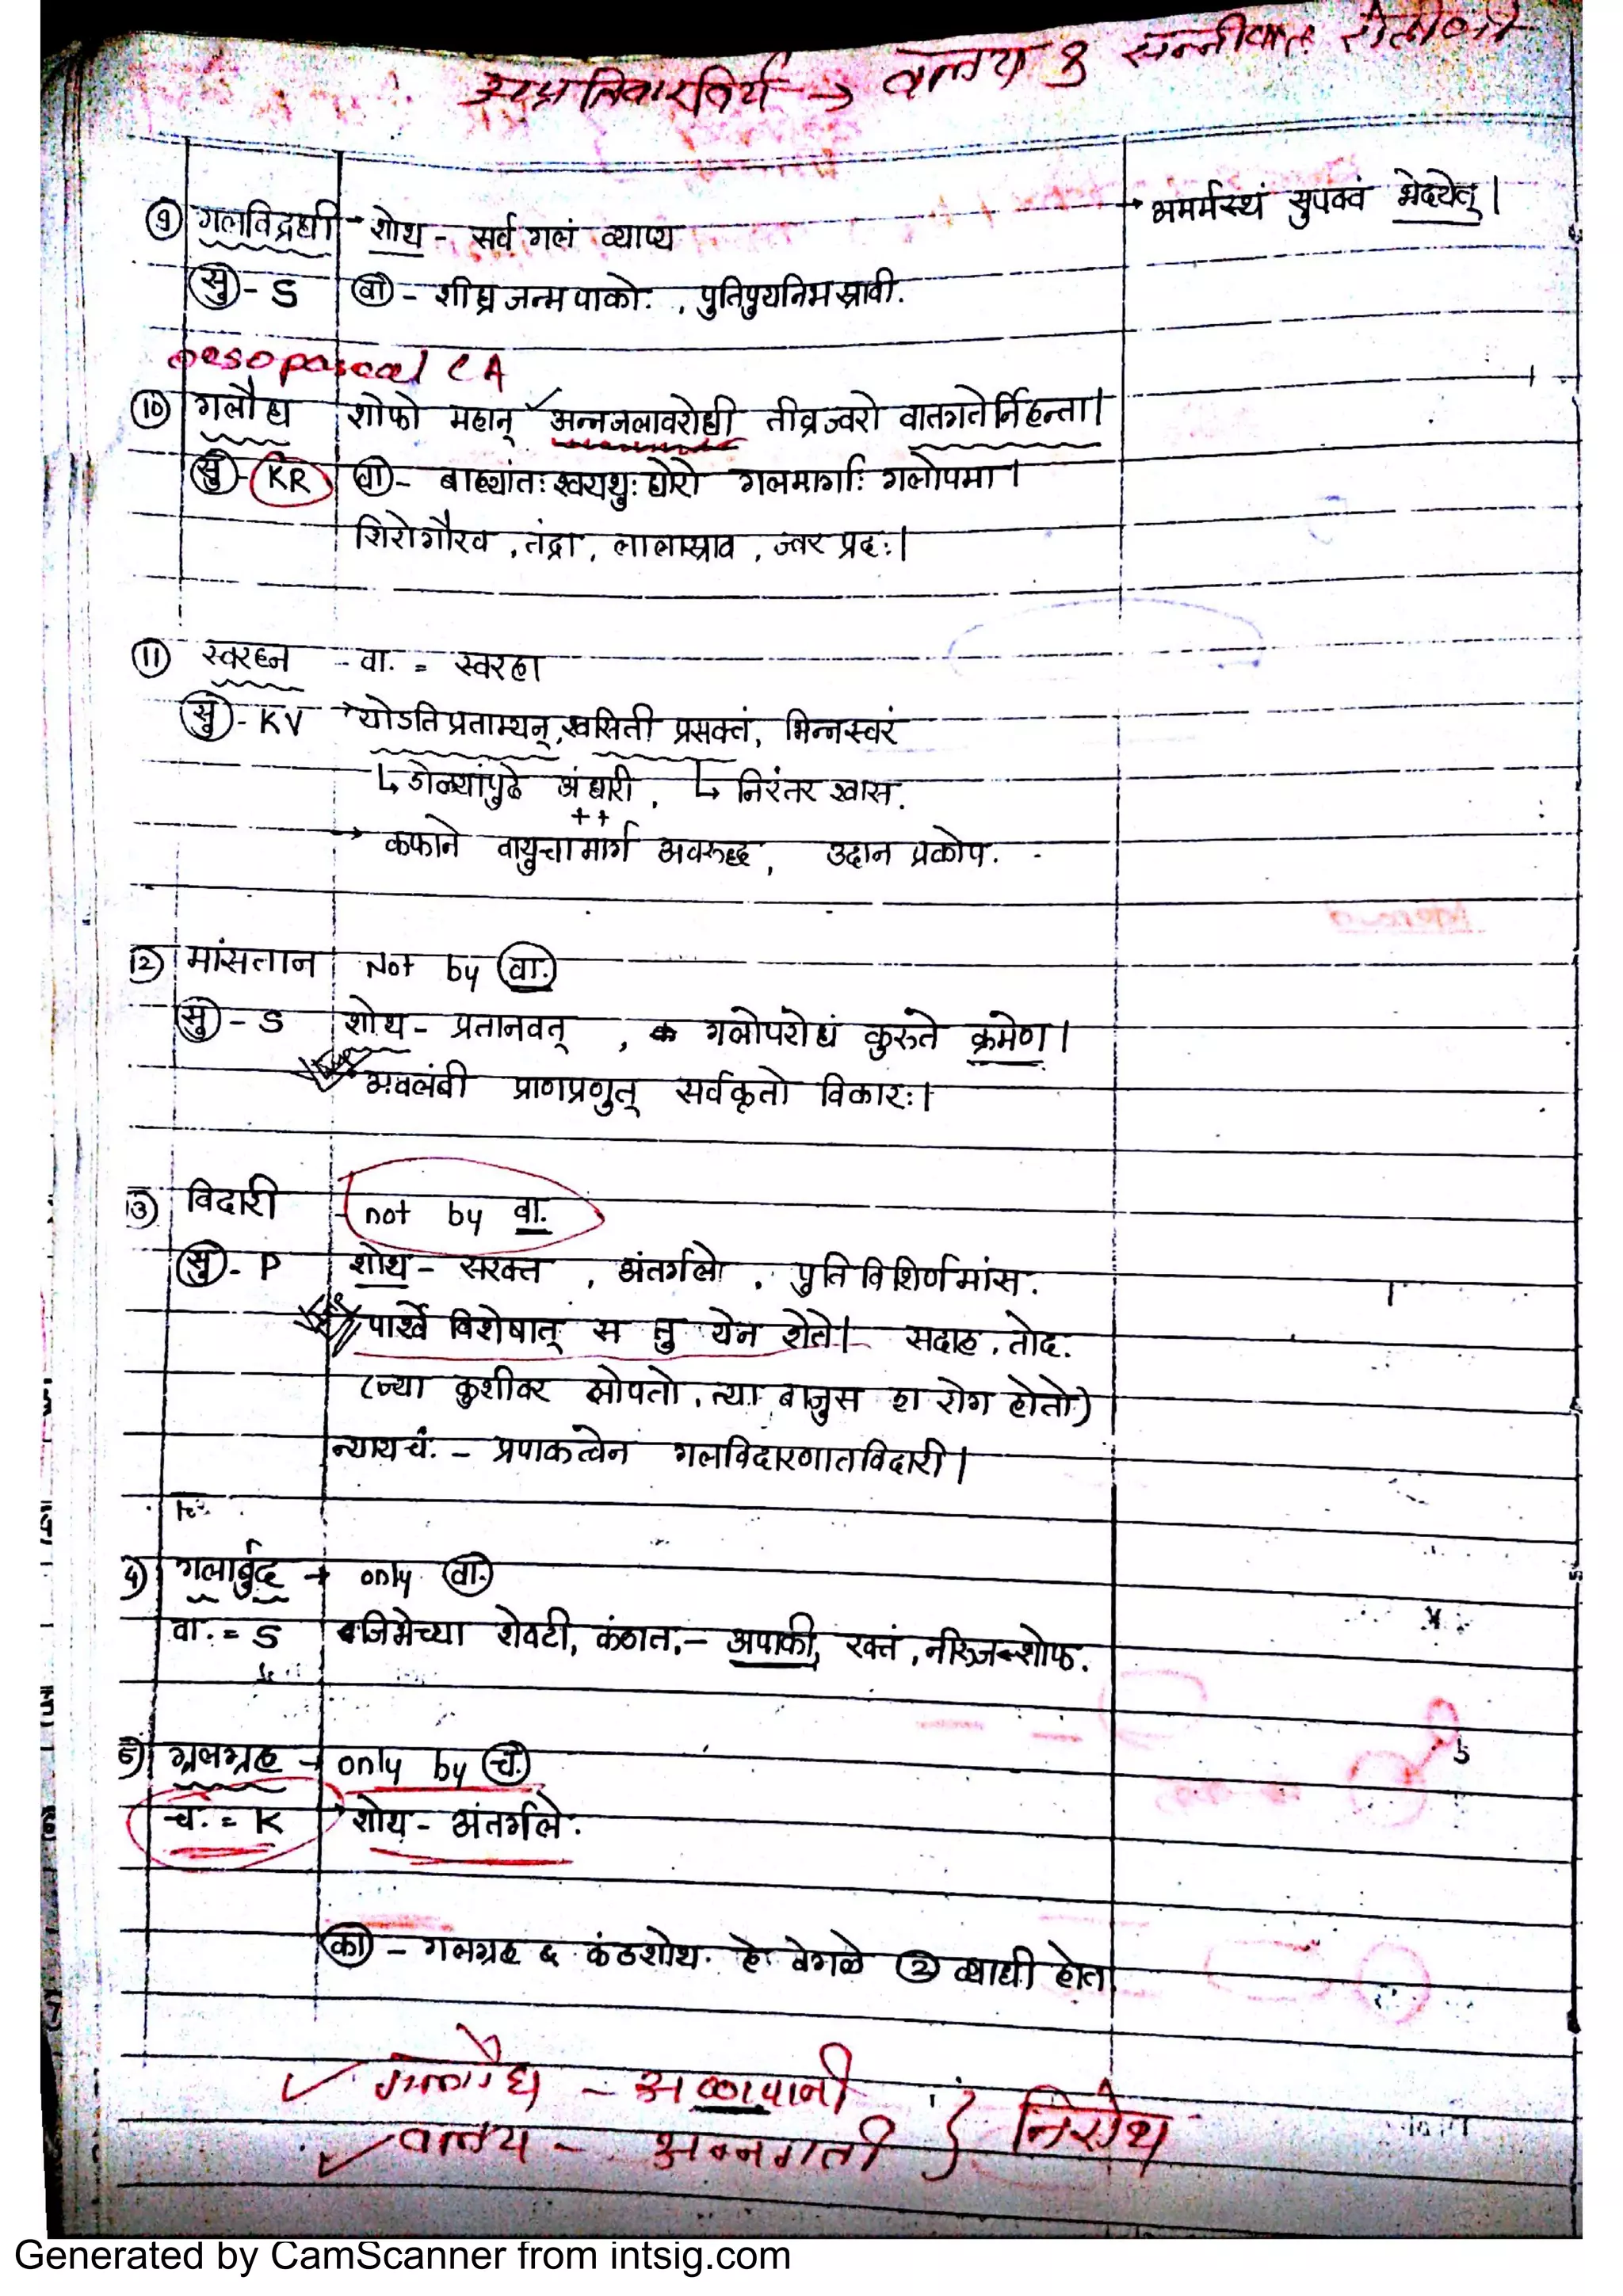 → वलय & सन्नीपात
⑨ गलविद्रधी → शोथ - सर्व गलं व्याप्य → अमर्मस्थं सुपक्वं भेदयेत्।
सु - S वा - शीघ्र जन्म पाको: , पुतिपुयनिभस्रावी.
oesopaseal CA
⑩ गलौघ शोफो महान् अन्नजलावरोधी तीव्रज्वरो वातगतेर्निहन्ता।
सु - KR वा - बाह्यांतः श्वयथुः घोरो गलमार्गाः गलोपमा।
शिरोगौरव , तंद्रा , लालास्राव , ज्वर प्रदः।
⑪ स्वरघ्न - वा. = स्वरहा
सु - KV → योऽतिप्रताम्यन्, श्वसिती प्रसक्तं, भिन्नस्वरं
↳ डोळ्यांपुढे अंधारी , ↳ निरंतर श्वास.
++
→ कफाने वायुचा मार्ग अवरुद्ध , उदान प्रकोप.
⑫ मांसतान Not by वा.
सु - S शोथ - प्रतानवत् , गलोपरोधं कुरुते क्रमेण।
अवलंबी प्राणप्रणुत् सर्वकृतो विकारः।
⑬ विदारी not by वा.
सु - P शोथ - सरक्त , अंतर्गले , पुति विशिर्णमांस.
पार्श्वे विशेषात् स तु येन शेते। सदाह , तोद.
(ज्या कुशीवर झोपतो, त्या बाजुस हा रोग होतो)
न्यायचं. - प्रपाकत्वेन गलविदारणातविदारी।
4) गलार्बुद → only वा.
वा. = S जिभेच्या शेवटी, कंठात, - अपाकी, रक्तं , नीरुज शोफ.
5) गलग्रह → only by च.
च. = K → शोथ - अंतर्गले.
का - गलग्रह & कंठशोथ हे वेगळे ② व्याधी होत
✓ गलौघ - अन्नपानी } निरोध
✓ वलय - अन्नगती
Generated by CamScanner from intsig.com